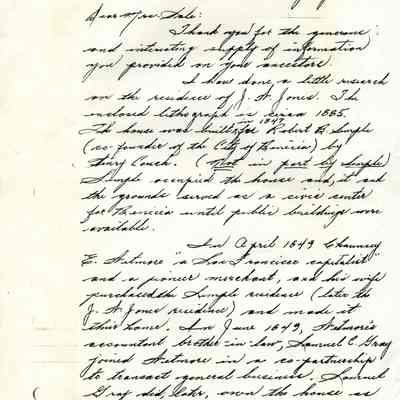 Dear Mrs. Dale:
Thank you for the generous
and interesting supply of information
you provided on your ancestors.
I have done a little research
on the residence of J. A. Jones. The
enclosed lithograph is circa 1885.
in 1847
The house was built for Robert B. Semple
(co-founder of the City of Benicia) by
Henry Couch. (Not in part by Semple)
Semple occupied the house and, it and
the grounds served as a civic center
for Benicia until public buildings were
available.
In April 1849 Chauncey
E. Wetmore "a San Francisco capitalist"
and a pioneer merchant, and his wife
purchased the Semple residence (later the
J. A. Jones residence) and made it
their home. In June 1849, Wetmore's
accountant brother-in-law, Samuel C. Gray
joined Wetmore in a co-partnership
to transact general business. Samuel
Gray did, later, own the house as